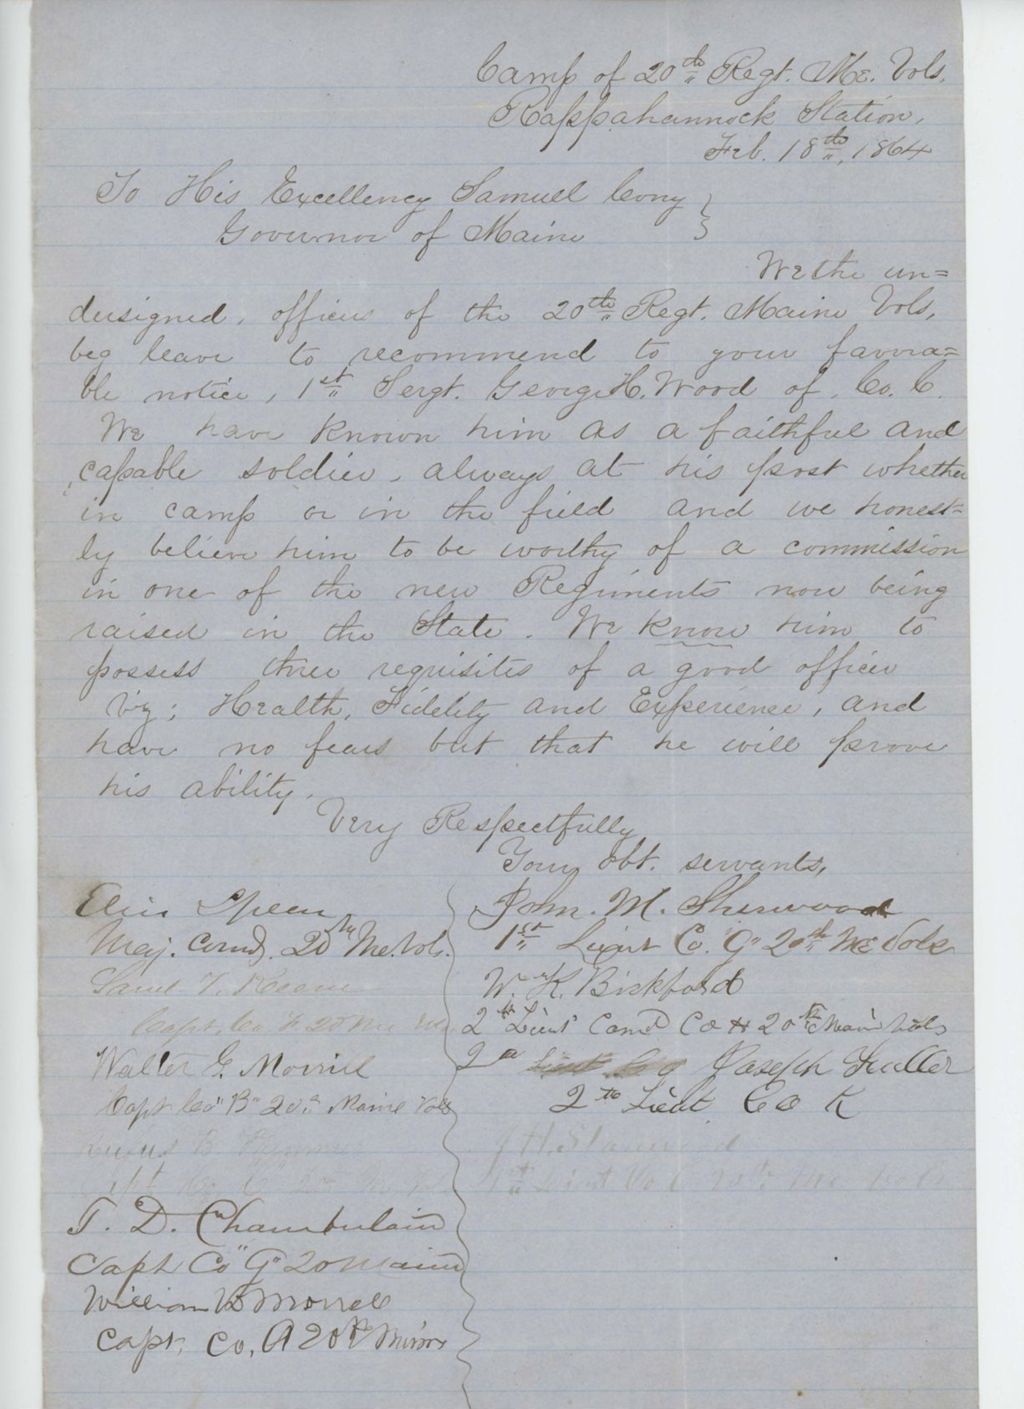 Camp of 20th Regt. Me. Vols.
Rappahannock Station,
Feb. 18th, 1864
To His Excellency Samuel Cony
Governor of Maine
We the un=
dersigned, officers of the 20th Regt. Maine Vols,
beg leave to recommend to your favora=
ble notice, 1st Sergt. George H. Wood of Co. C.
We have known him as a faithful and
capable soldier, always at his post whether
in camp or in the field and we honest=
ly believe him to be worthy of a commission
in one of the new Regiments now being
raised in the State. We know him to
possess three requisites of a good officer
viz; Health, Fidelity and Experience, and
have no fears but that he will prove
his ability.
Very Respectfully
Your obt. servants,
Ellis Spear
Maj. Comd. 20th Me. Vols.
Saml T. Keene
Capt. Co 20 Me
Walter G. Morrill
Capt Co "B" 20th Maine Vols
B
Capt
T. D. Chamberlain
Capt Co "G" 20 Maine
William W Morrell
Capt. Co. A 20th
John. M. Sherwood
1st Lieut Co. "G" 20th Me Vols
W. K. Bickford
2nd Lieut Comd Co H 20th Maine Vols
2d Joseph Fuller
2nd Lieut Co K
J H Stanwood
1st Lieut Co C 20th Me Vols